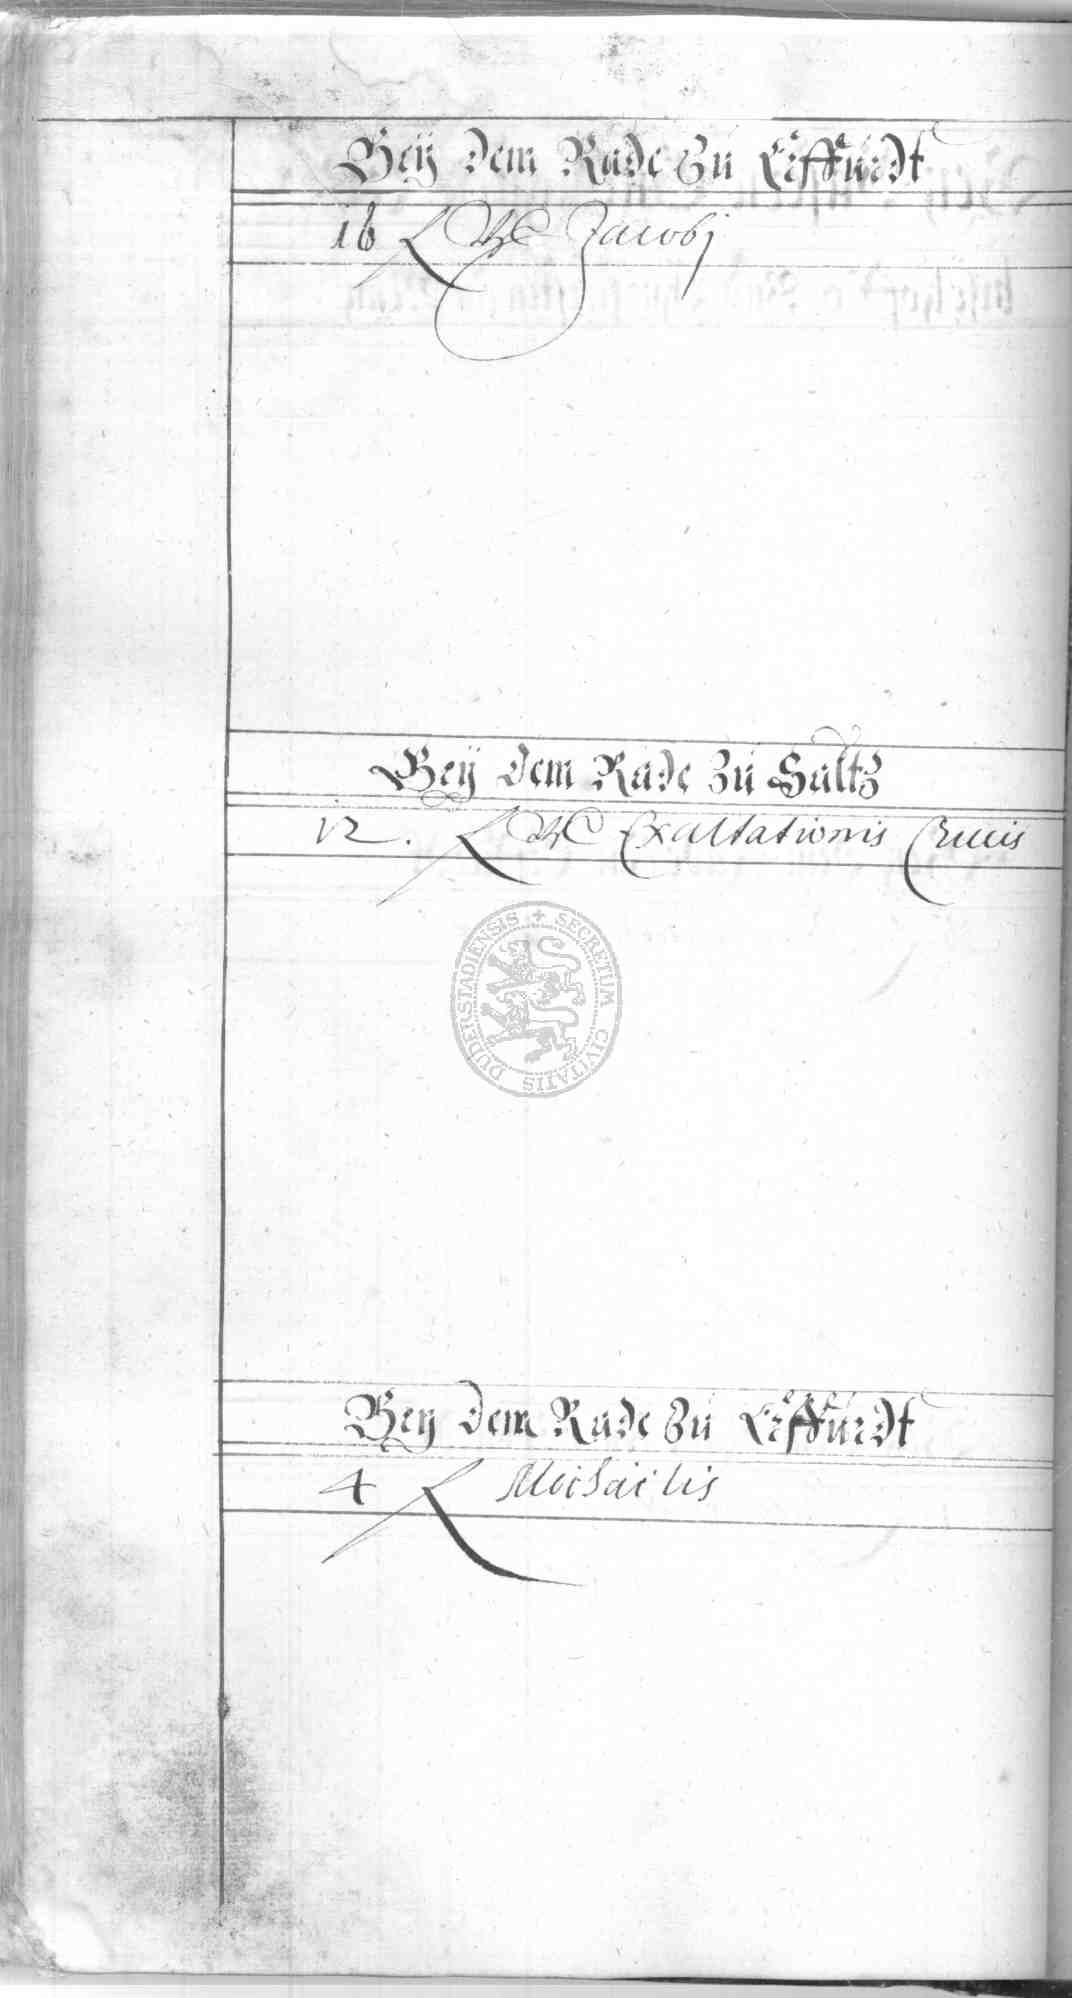 Beÿ dem Rade Zu Erffurdt
16 Jacobj
Beÿ dem Rade Zu Saltz
12. Exaltationis Crucis
SECRETUM CIVITATIS DUDERSTADIENSIS
Beÿ dem Rade Zu Erffurdt
4 Michaelis